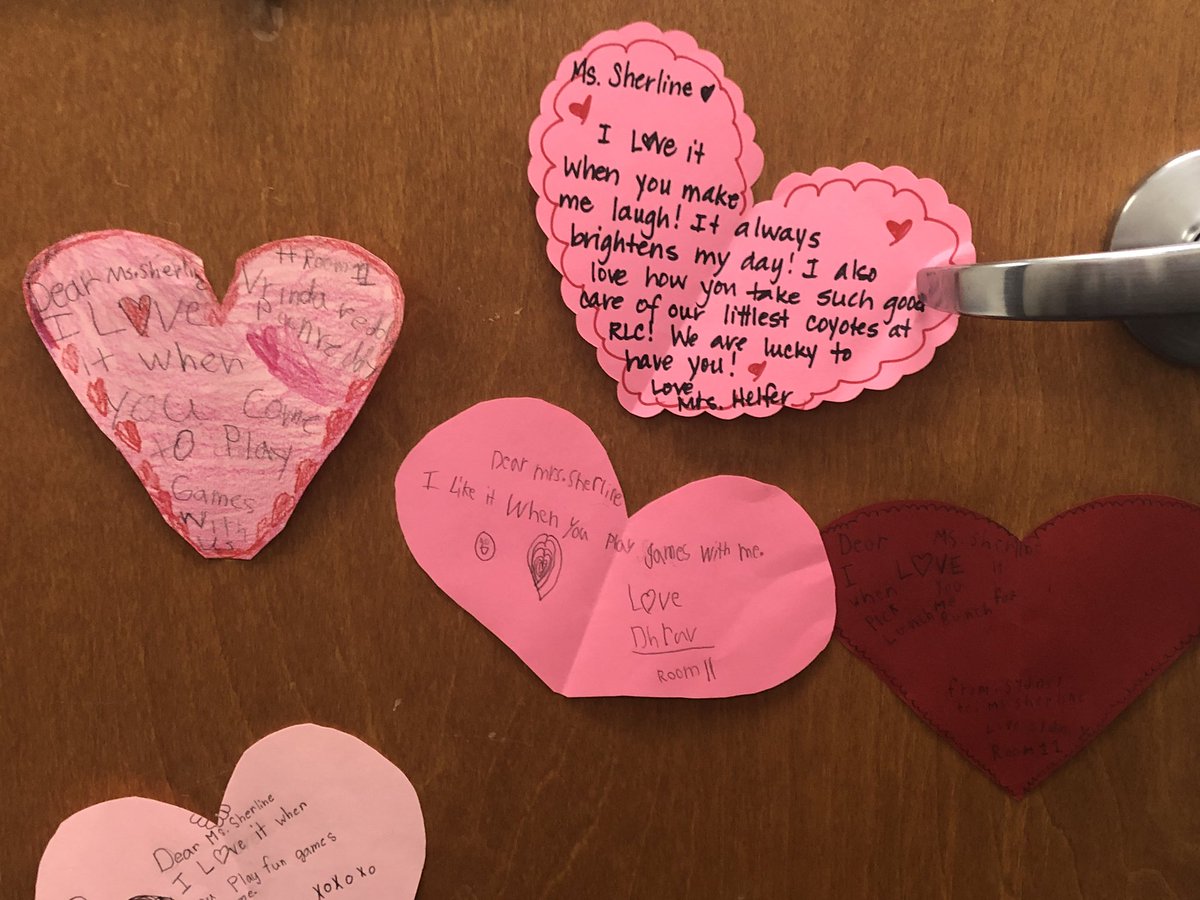 Ms. Sherline
I Love it
when you make
me laugh! It always
brightens my day! I also
love how you take such good
care of our littlest coyotes at
RLC! We are lucky to
have you!
Love
Mrs. Helfer
Dear Ms. Sherline
I LOVE
it when
you come
to Play
Games
With
us
# Room 11
Vrinda
Dear mrs. Sherline
I Like it When you Play games with me.
Love
Dhruv
Room 11
Dear Ms. Sherline
I LOVE it
when you
Pick me
Lunch Bunch
from. Sydney
to. Ms. Sherline
Room 11
Dear Ms. Sherline
I LOVE it when
Play fun games
me.
XOXOXO